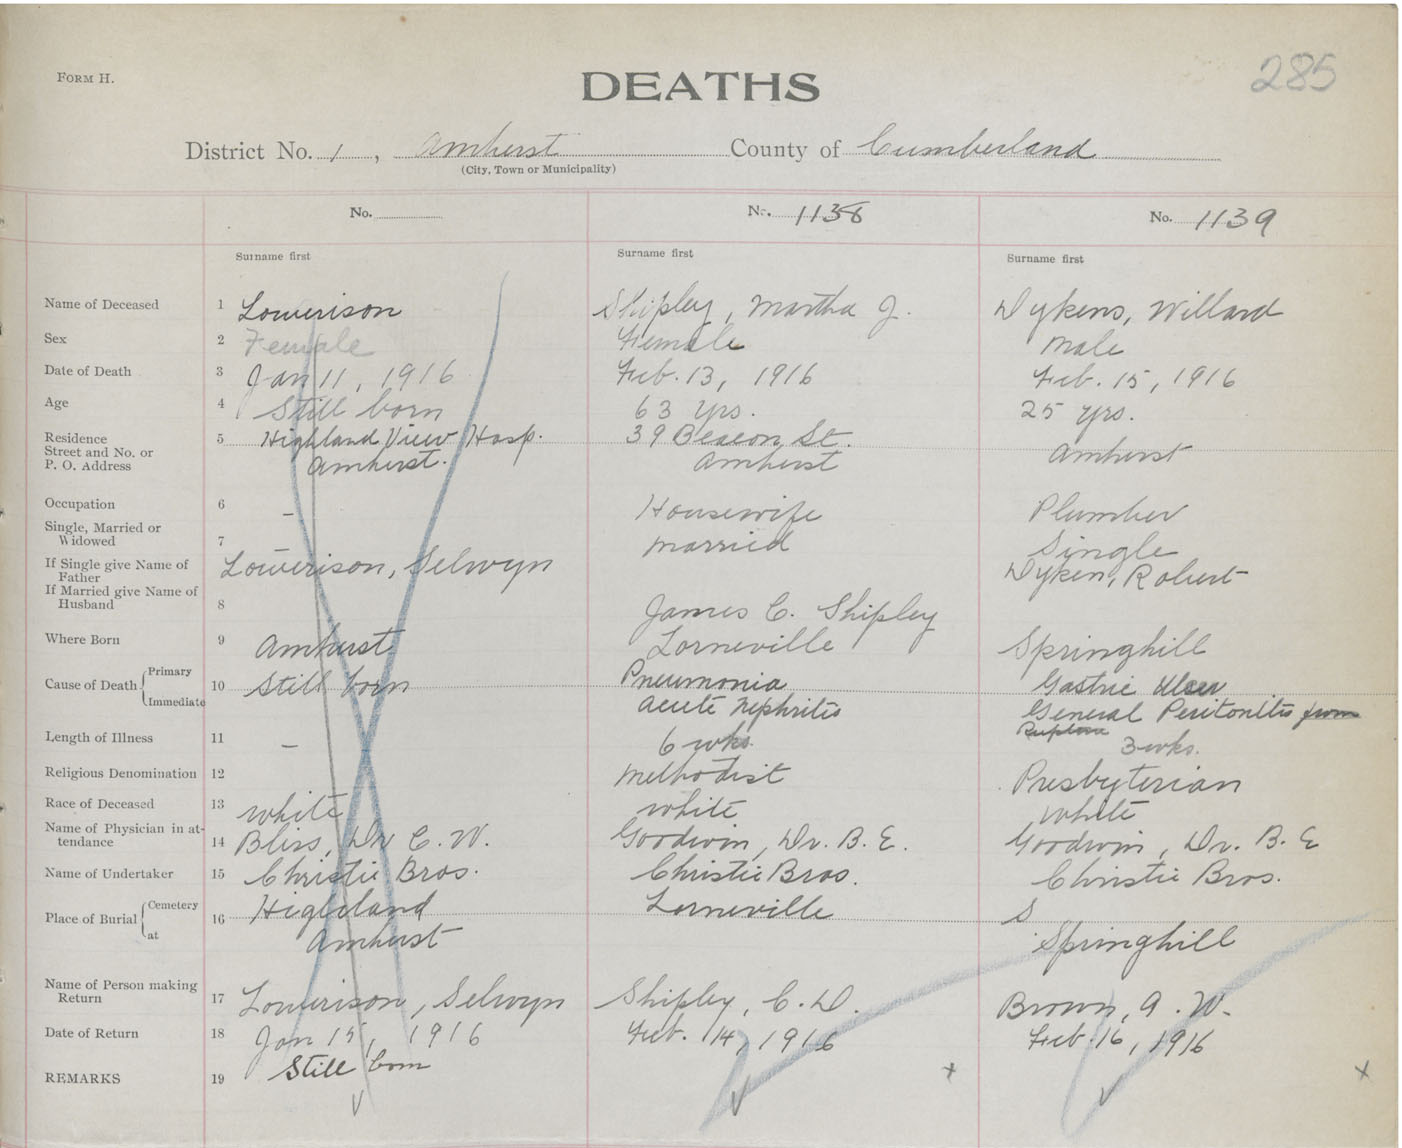 FORM H.
DEATHS
285
District No. 1, Amherst County of Cumberland
(City, Town or Municipality)
No. No. 1138 No. 1139
Surname first Surname first Surname first
Name of Deceased 1 Lowerison Shipley, Martha J. Dykens, Willard
Sex 2 Female Female Male
Date of Death 3 Jan 11, 1916 Feb. 13, 1916 Feb. 15, 1916
Age 4 Still born 63 yrs. 25 yrs.
Residence 5 Highland View Hosp. 39 Beacon St.
Street and No. or
P. O. Address Amherst. Amherst Amherst
Occupation 6 – Housewife Plumber
Single, Married or
Widowed 7 – Married Single
If Single give Name of
Father Lowerison, Selwyn Dyken, Robert
If Married give Name of
Husband 8 James C. Shipley
Where Born 9 Amherst Lorneville Springhill
Cause of Death Primary 10 Still born Pneumonia Gastric Ulcer
Immediate Acute Nephritis General Peritonitis from
Rupture
Length of Illness 11 – 6 wks. 3 wks.
Religious Denomination 12 Methodist Presbyterian
Race of Deceased 13 white white white
Name of Physician in at-
tendance 14 Bliss, Dr C. W. Goodwin, Dr. B. E. Goodwin, Dr. B. E
Name of Undertaker 15 Christie Bros. Christie Bros. Christie Bros.
Place of Burial Cemetery 16 Highland Lorneville S
at Amherst Springhill
Name of Person making
Return 17 Lowerison, Selwyn Shipley, C. D. Brown, A. W.
Date of Return 18 Jan 15, 1916 Feb. 14, 1916 Feb. 16, 1916
REMARKS 19 Still born x x